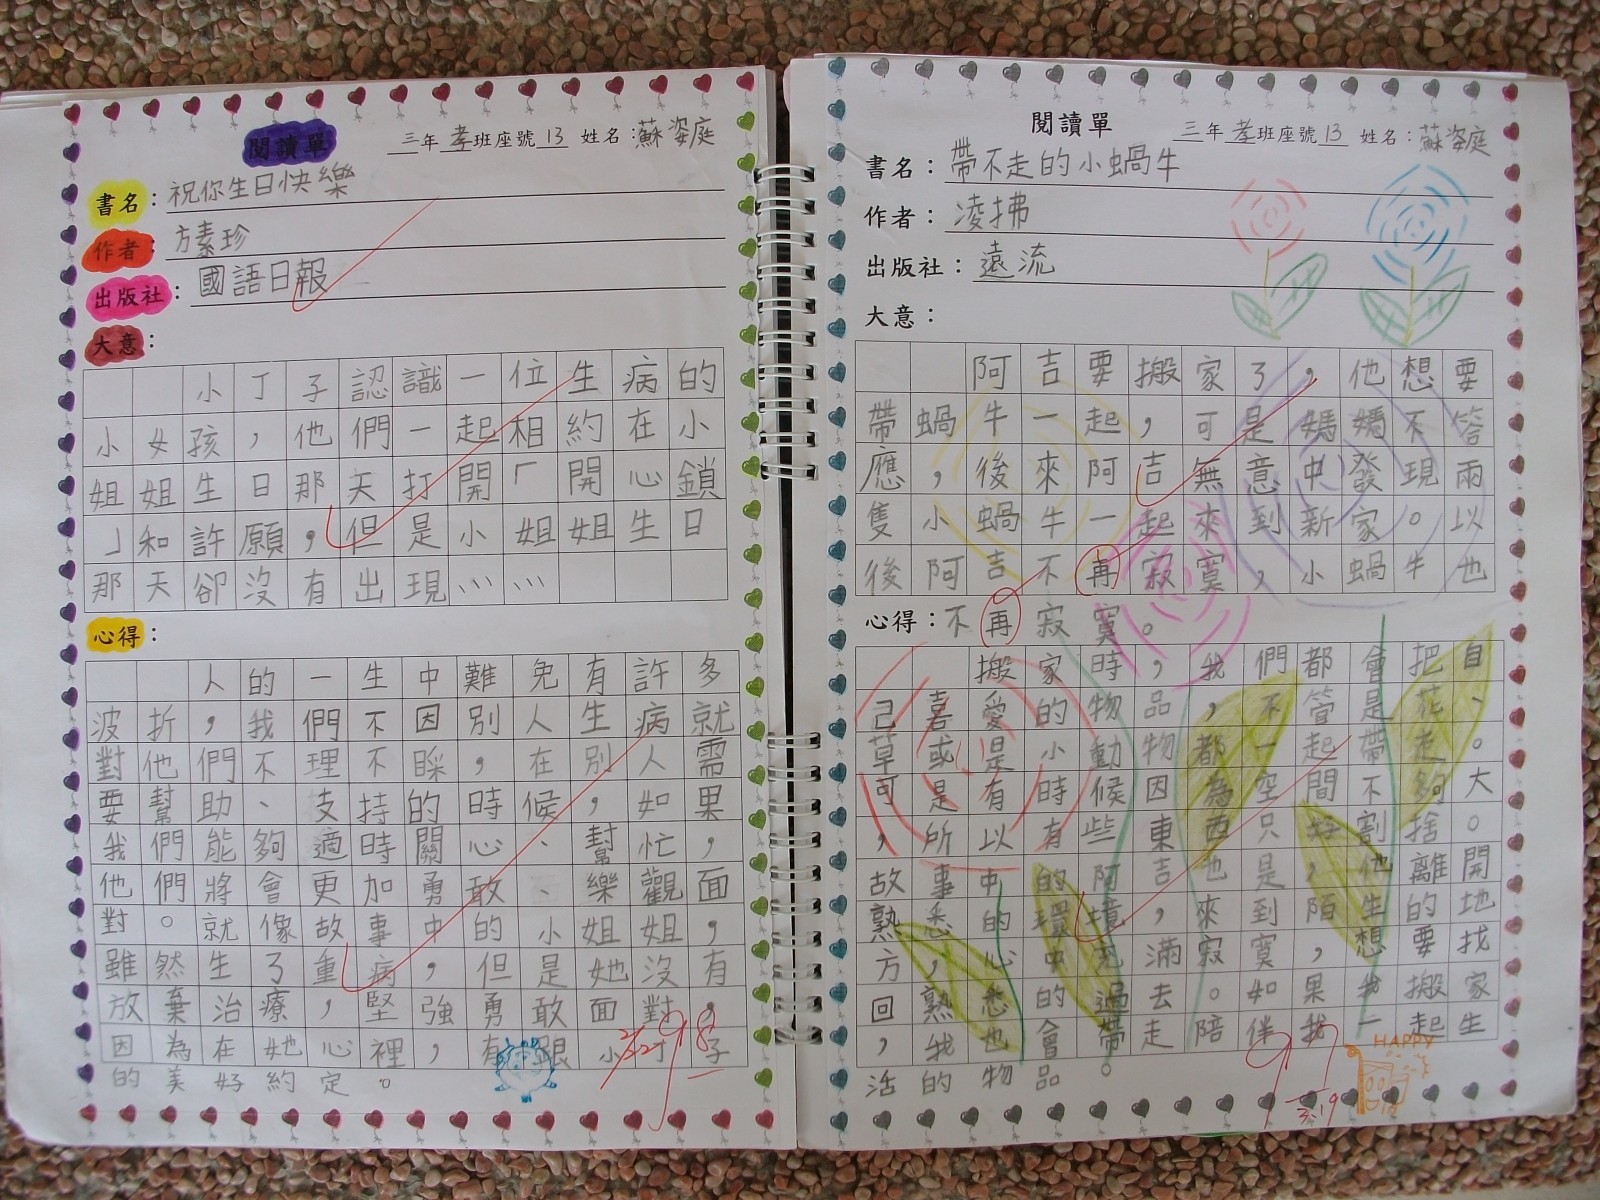 閱讀單
三年孝班座號13 姓名：蘇姿庭
書名：祝你生日快樂
作者：方素珍
出版社：國語日報
大意：
小丁子認識一位生病的
小女孩，他們一起相約在小
姐姐生日那天打開「開心鎖
」和許願，但是小姐姐生日
那天卻沒有出現⋯⋯
心得：
人的一生中難免有許多
波折，我們不因別人生病就
對他們不理不睬，在別人需
要幫助、支持的時候，如果
我們能夠適時關心、幫忙，
他們將會更加勇敢、樂觀面
對。就像故事中的小姐姐，
雖然生了重病，但是她沒有
放棄治療，堅強勇敢面對，
因為在她心裡，有跟小丁子
的美好約定。
98
閱讀單
三年孝班座號13 姓名：蘇姿庭
書名：帶不走的小蝸牛
作者：凌拂
出版社：遠流
大意：
阿吉要搬家了，他想要
帶蝸牛一起，可是媽媽不答
應，後來阿吉無意中發現兩
隻小蝸牛一起來到新家。以
後阿吉不再寂寞，小蝸牛也
心得：不再寂寞。
搬家時，我們都會把自
己喜愛的物品，不管是花、
草或是小動物都一起帶走。
可是有時候因為空間不夠大
，所以有些東西只好割捨。
故事中的阿吉也是，他離開
熟悉的環境，來到陌生的地
方，心中充滿寂寞，想要找
回熟悉的過去。如果我搬家
，我也會帶走陪伴我一起生
活的物品。
97
3.19
HAPPY